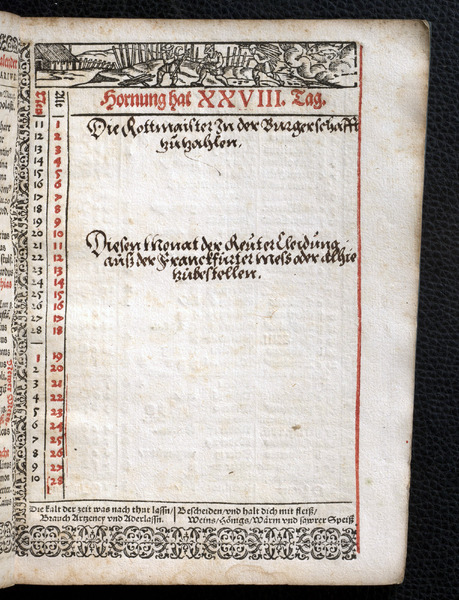 Hornung hat XXVIII. Tag.
New Alt
11 1
12 2
13 3
14 4
15 5
16 6
17 7
18 8
19 9
20 10
21 11
22 12
23 13
24 14
25 15
26 16
27 17
28 18
1 19
2 20
3 21
4 22
5 23
6 24
7 25
8 26
9 27
10 28
Die Rottmaister In der Burgerschafft
zu zahlen.
Diesen Monat der Reüter Cleidung
auß der Franckfurter mess oder
zubestellen.
Die Kält der zeit was nach thut lassn/
Brauch Artzney vnd Aderlassn.
Bescheiden/vnd halt dich mit fleiß/
Weins/Hönigs/Wärm vnd sawrer Speiß